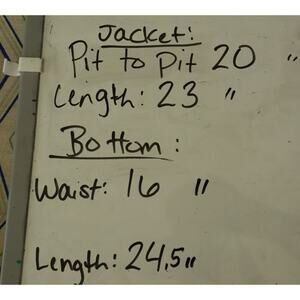 Jacket:
Pit to Pit 20 "
Length: 23 "
Bottom :
Waist: 16 "
Length: 24.5"